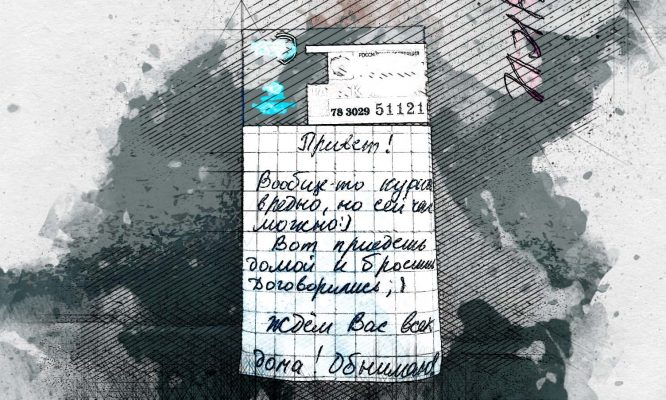 РОССИЙСКАЯ ФЕДЕРАЦИЯ
78 3029 51121
Привет!
Вообще-то кури
вредно, но сейчас
можно:)
Вот приедешь
домой и бросишь
Договорились ;)
Ждём Вас всех
дома! Обнимаю